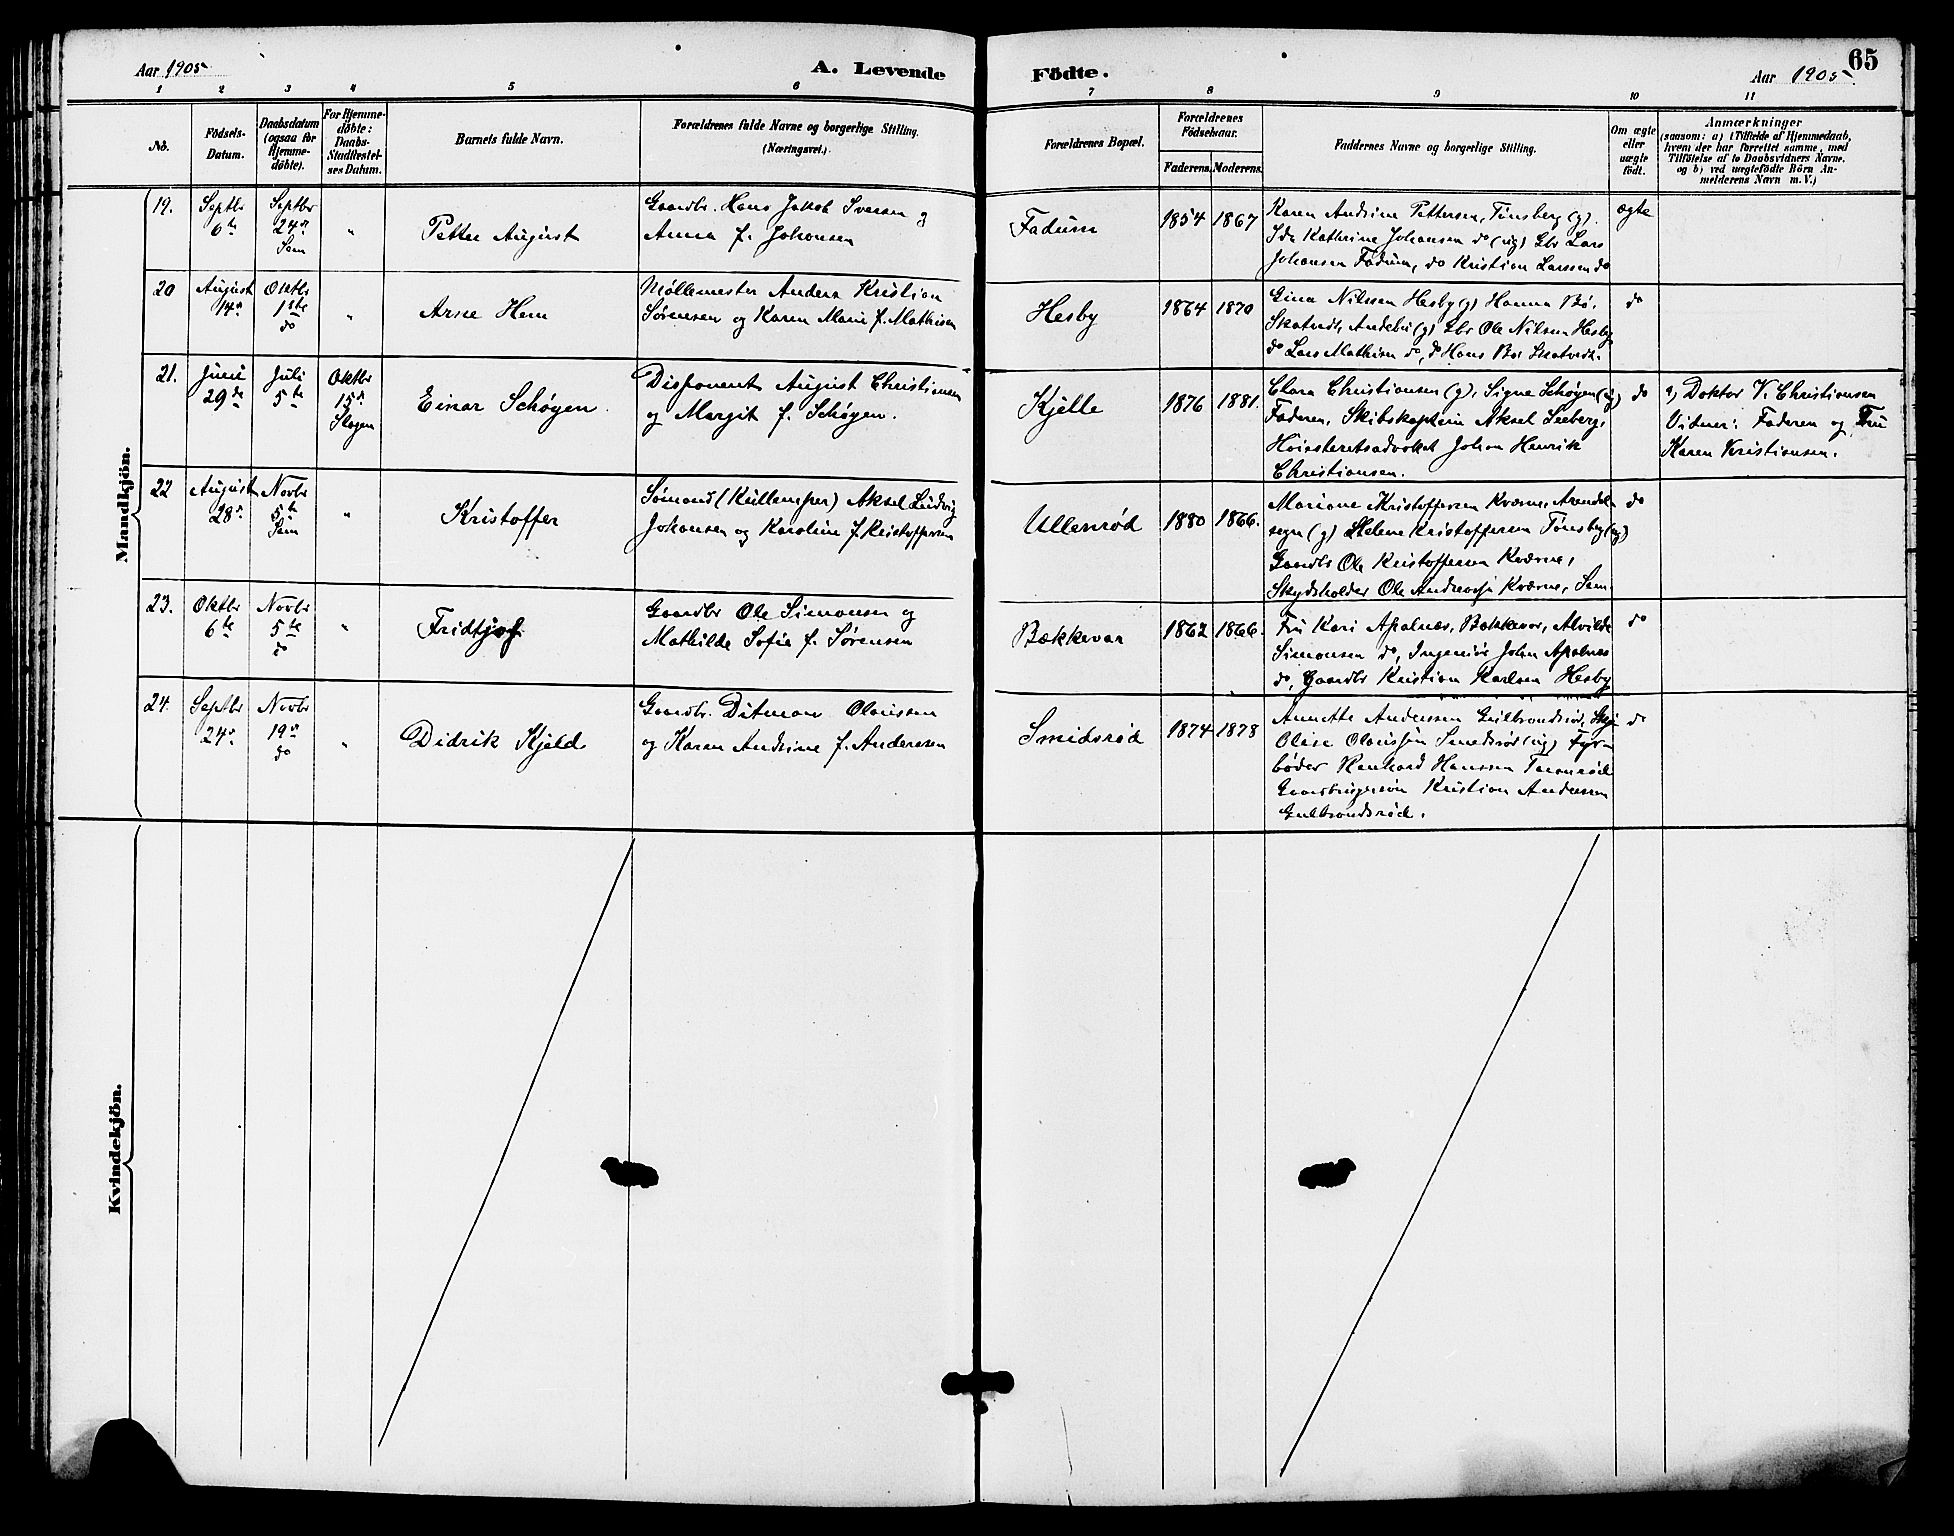 Aar 1905
A. Levende
Födte.
Aar 1905
65
1 2 3 4 5 6 7 8 9 10 11
No.
Födsels-
Datum.
Daabsdatum
(ogsaa for
Hjemme-
döbte).
For Hjemme-
döbte:
Daabs-
Stadfæstel-
ses Datum.
Barnets fulde Navn.
Forældrenes fulde Navne og borgerlige Stilling.
(Næringsvei.)
Forældrenes Bopæl.
Forældrenes
Födselsaar.
Faderens. Moderens.
Faddernes Navne og borgerlige Stilling.
Om ægte
eller
uægte
födt.
Anmærkninger
(saasom: a) i Tilfælde af Hjemmedaab,
hvem der har forrettet samme, med
Tilföielse af to Daabsvidners Navne.
og b) ved uægtefödte Börn An-
melderens Navn m.V.)
Mandkjön.
19.
Septbr
6te
Septbr
24de
Sem
"
Petter August
Gaardbr. Hans Jakob Iversen og
Anna f. Johansen
Fadum
1854 1867
Karen Andrine Pettersen, Tønsberg (g).
Ida Kathrine Johansen do (ug) Gbr Lars
Johansen Fadum, do Kristian Larssen do
ægte
20
August
14de
Oktbr
1ste
do
"
Arne Hem
Møllemester Anders Kristian
Sørensen og Karen Marie f. Mathisen
Hesby
1864 1870
Gina Nilssen Hesby (g) Hanna Bø,
Skatvedt, Andebu (g) Gbr Ole Nilsen Hesby
do Lars Mathisen do, do Hans Bø Skatvedt.
do
21.
Juni
29de
Juli
5te
Oktbr
15de
Slagen
Einar Schøyen.
Disponent August Christiansen
og Margit f. Schøyen.
Kjelle
1876 1881.
Clara Christiansen (g), Signe Schøyen (ug)
Faderen, Skibskaptein Aksel Seeberg,
Høiesteretsadvokat Johan Henrik
Christiansen.
do
a) Doktor V. Christiansen
Vidner: Faderen og Fru
Karen Kristiansen.
22
August
28de
Novbr
5te
Sem
"
Kristoffer
Sømand (Kullemper) Aksel Ludvig
Johansen og Karoline f. Kristoffersen
Ullenrød
1880 1866.
Mariane Kristoffersen Kværne, Arendal
sogn (g) Helene Kristoffersen Tønsbg (ug)
Gaardbr Ole Kristoffersen Kværne,
Skydsholder Ole Andreas Kværne, Sem
do
23.
Oktbr
6te
Novbr
5te
do
"
Fridtjof
Gaardbr Ole Simonsen og
Mathilde Sofie f. Sørensen
Bækkevar
1862 1866.
Fru Kari Apalnæs, Bækkevar, Alvilde
Simonsen do, Ingeniør John Apalnæs
do, Gaardbr Kristian Karlsen Hesby
do
24.
Septbr
24de
Novbr
19de
do
"
Didrik Kjeld
Gaardbr. Ditman Olaussen
og Karen Andrine f. Andersen
Smidsrød
1874 1878
Annette Andersen Gulbrandsrød,
Olise Olaussen Smedsrød (ug) Fyr-
bøder Hansen
Gaardbrugersøn Kristian Andersen
Gulbrandsrød.
do
Kvindekjön.